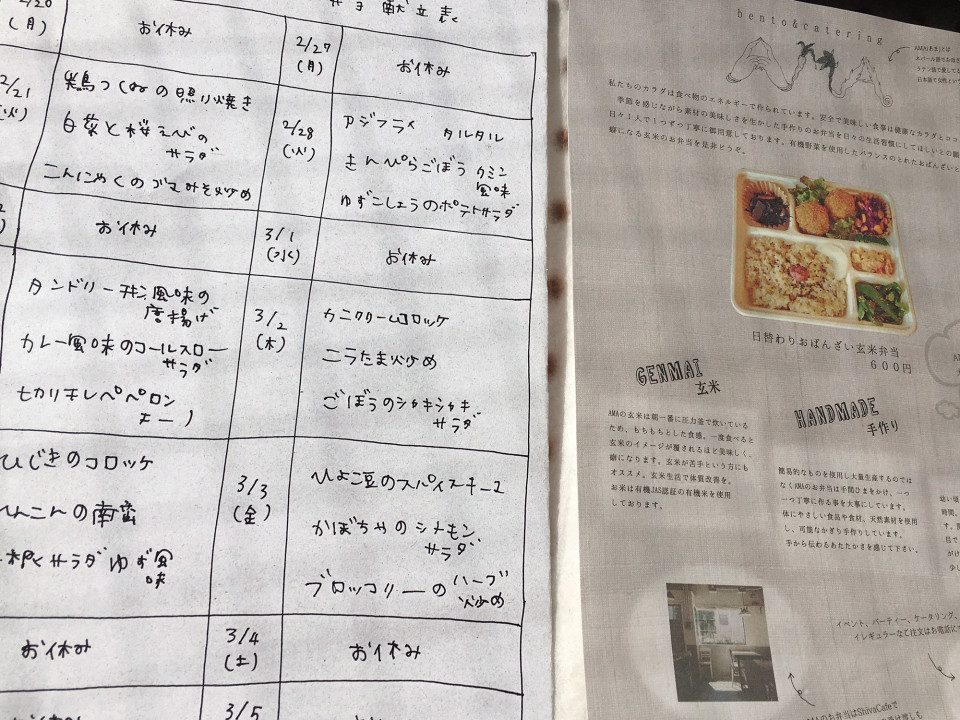 弁当献立表
2/20
(月)
お休み
2/21
(火)
鶏つくねの照り焼き
白菜と桜えびの
サラダ
こんにゃくのゴマみそ炒め
お休み
タンドリーチキン風味の
唐揚げ
カレー風味のコールスロー
サラダ
セカリモレペペロン
チーノ
ひじきのコロッケ
れんこんの南蛮
大根サラダゆず風
味
お休み
2/27
(月)
お休み
2/28
(火)
アジフライ タルタル
きんぴらごぼう クミン
風味
ゆずこしょうのポテトサラダ
3/1
(水)
お休み
3/2
(木)
カニクリームコロッケ
ニラたま炒め
ごぼうのシャキシャキ
サラダ
3/3
(金)
ひよこ豆のスパイスキーマ
かぼちゃのシナモン
サラダ
ブロッコリーのハーブ
炒め
3/4
(土)
お休み
3/5
bento&catering
AMA
AMA(あま)とは
私たちのカラダは食べ物のエネルギーで作られています。安全で美味しい食事は健康なカラダとココ
季節を感じながら素材の美味しさを生かした手作りのお弁当を日々の生活習慣にしてほしいとの願
日々1人で1つずつ丁寧に御用意しております。有機野菜を使用したバランスのとれたおばんざいと
癖になる玄米のお弁当を是非どうぞ。
日替わりおばんざい玄米弁当
600円
GENMAI
玄米
AMAの玄米は朝一番に圧力釜で炊いている
ため、もちもちとした食感。一度食べると
玄米のイメージが覆されるほど美味しく、
癖になります。玄米が苦手という方にも
オススメ。玄米生活で体質改善を。
お米は有機JAS認証の有機米を使用
しております。
HANDMADE
手作り
簡易的なものを使用し大量生産するのでは
なくAMAのお弁当は手間ひまをかけ、一つ
一つ丁寧に作る事を大事にしています。
体にやさしい食品や食材、天然素材を使用
し、可能なかぎり手作りしています。
手から伝わるあたたかさを感じて下さい。
イベント、パーティー、ケータリング、
イレギュラーなご注文はお電話に
AMAのお弁当はShivaCafeで